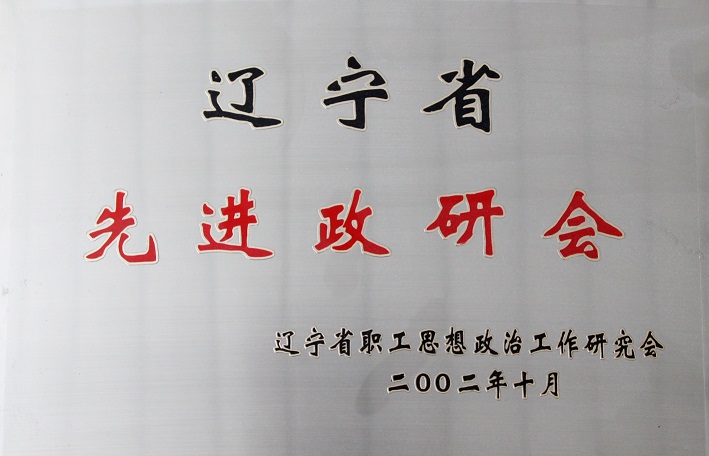 辽宁省
先进政研会
辽宁省职工思想政治工作研究会
二〇〇二年十月